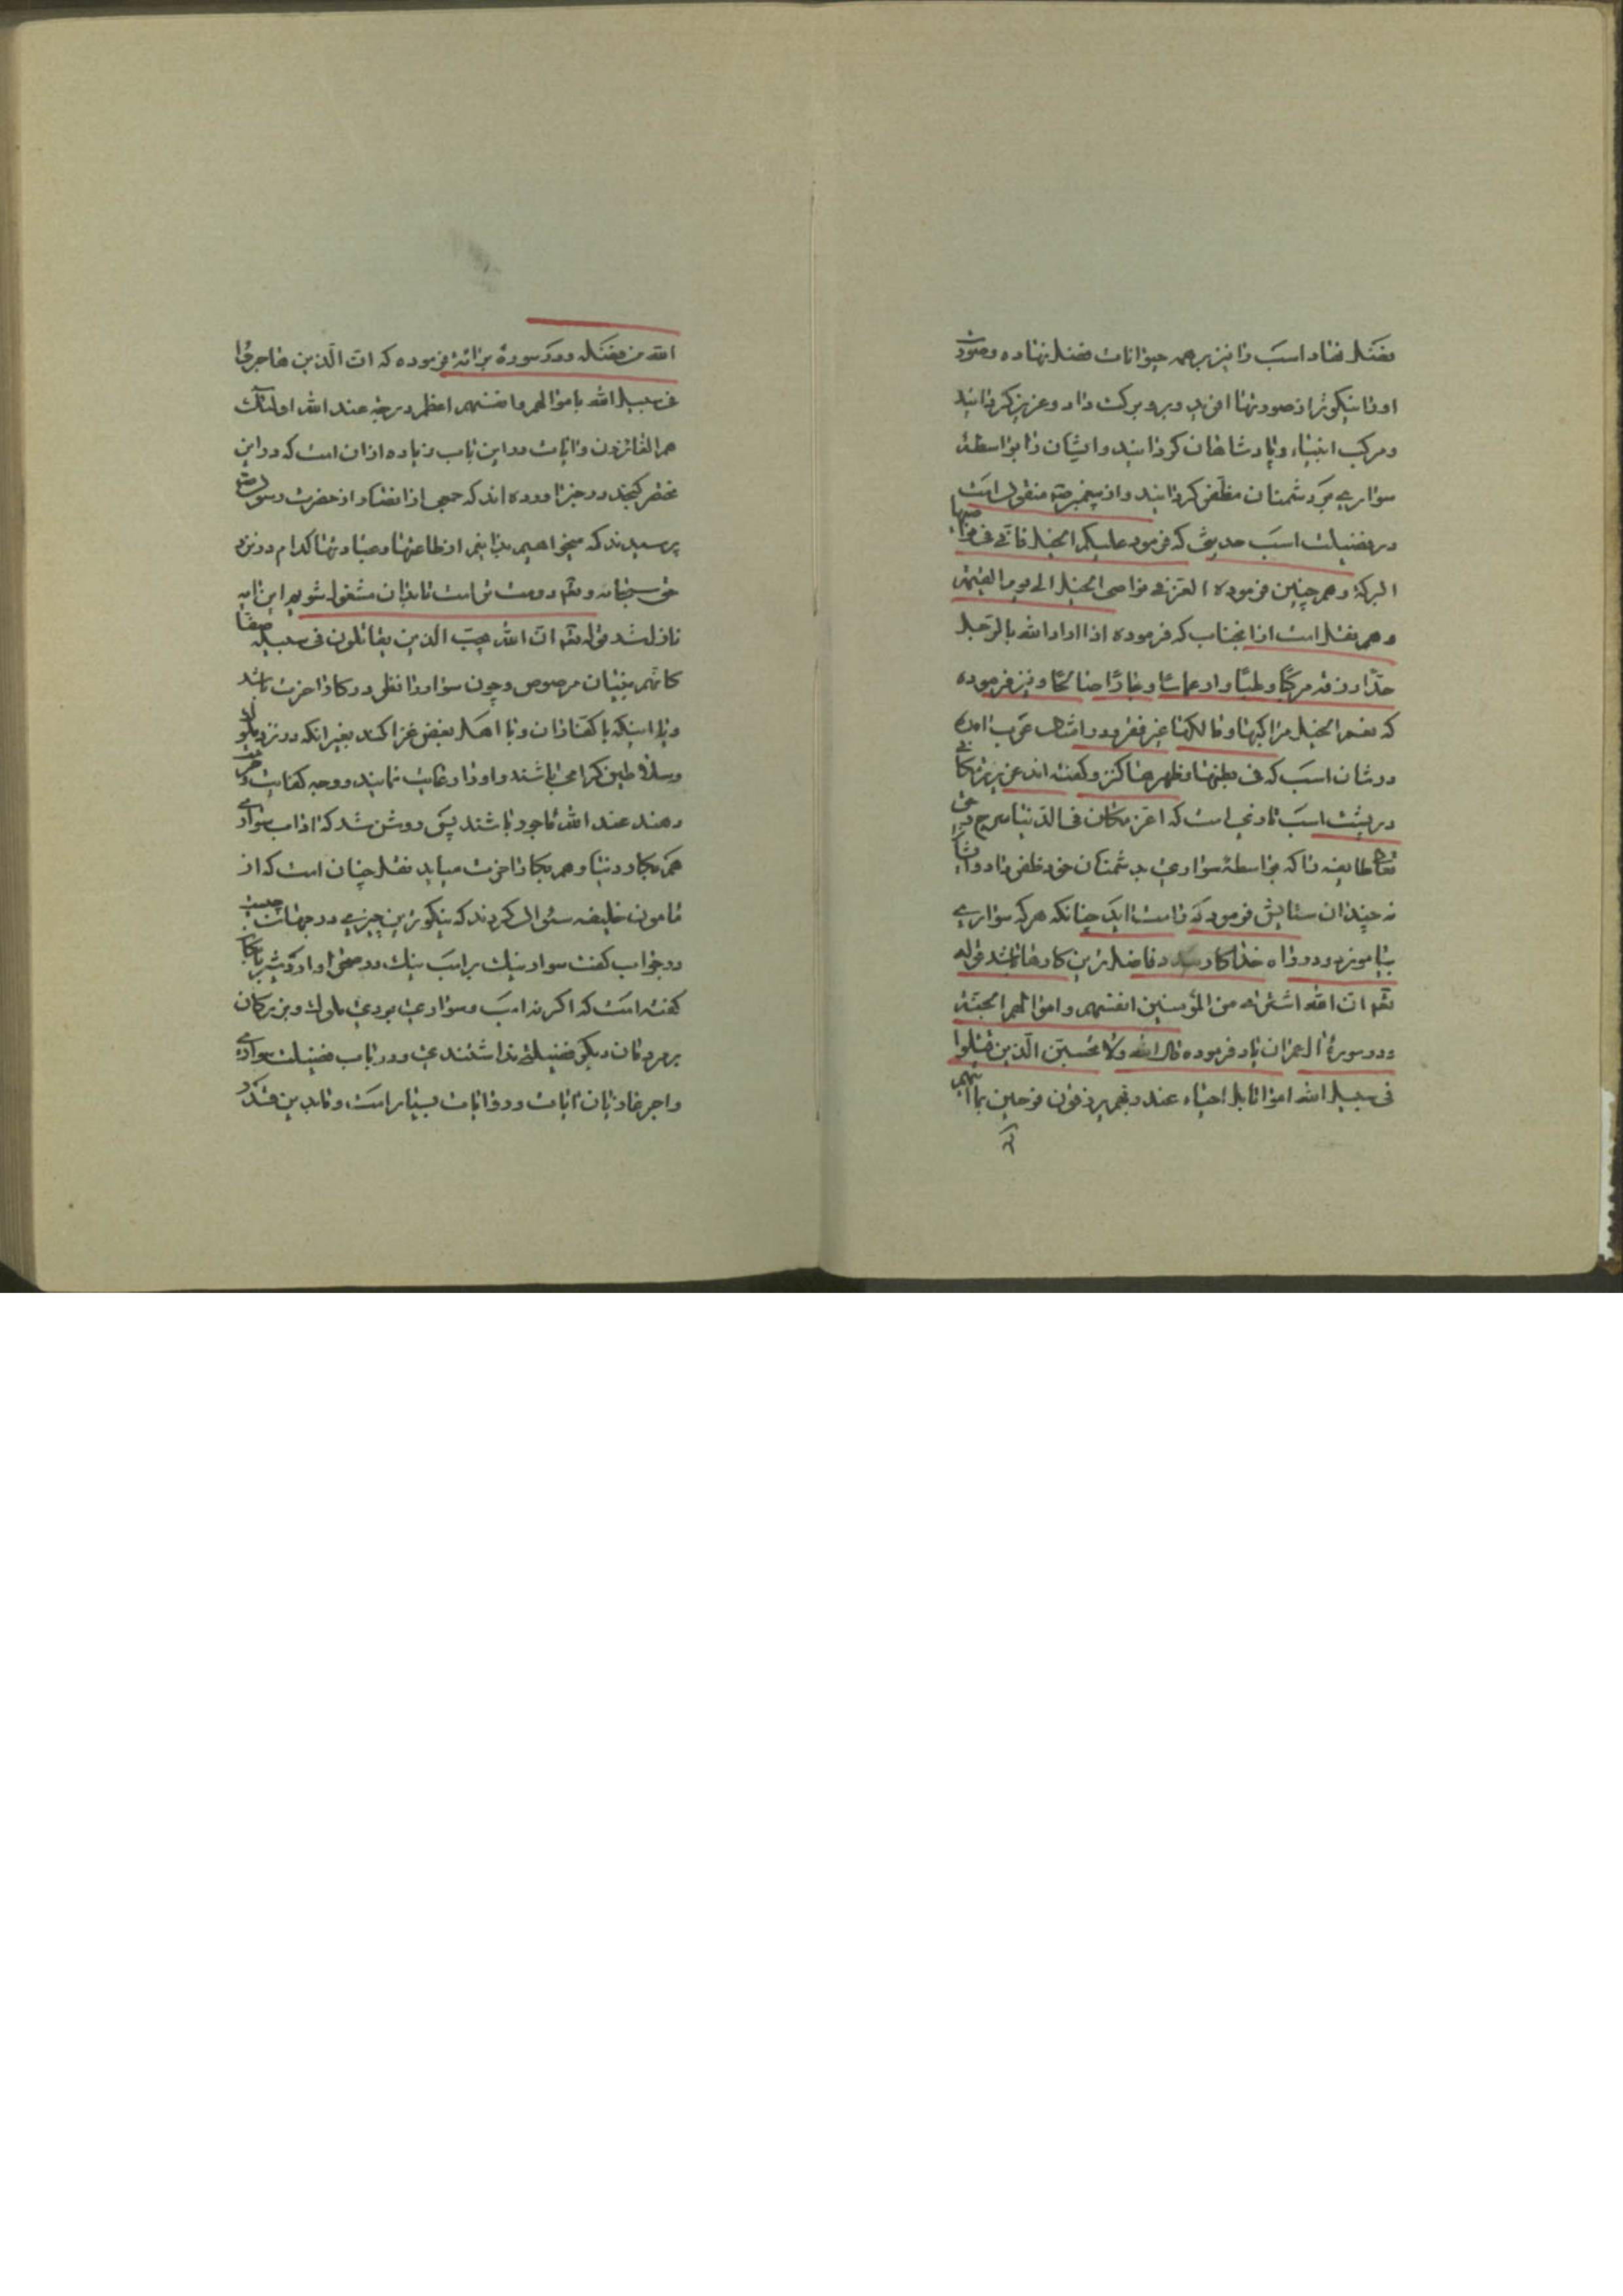 بفضل نهاد اسب را نیز بر همه حیوانات فضل نهاده و صورت
او را نیکوتر از صورتها افرید و برو برکت داد و عزیز کردانید
و مرکب انبیاء و پادشاهان کردانید و ایشان را بواسطهٔ
سواری بر دشمنان مظفر کردانید و از پیغمبر صلعم منقول است
در فضیلت اسب حدیثی که فرمود علیکم الخیل فان فی نواصیها
البرکة و همچنین فرموده العز فی نواصی الخیل الی یوم القیمة
و هم نقل است از انجناب که فرموده اذا اراد الله بالرجل
خیرا رزقه مرکبا و طیبا و نیز فرموده
که نعم الخیل مراکبها و مالکها غیر فقیر و در امثال عرب امده
در شان اسب که فی بطنها و ظهرها کنز و کفته اند عزیزترین مکانی
در پشت اسب تازی است که اعز مکان فی الدنیا سرج
طایفه را که بواسطهٔ سواری بر دشمنان خود ظفر داد و
نه چندان ستایش فرمود که راست اید چنانکه هر که سواری
بیاموزد و در راه خدا کار فاضلترین کارها باشد قوله
تعم ان الله اشتری من المؤمنین انفسهم و اموالهم الجنة
و در سورهٔ ال عمران یاد فرموده قال الله ولا تحسبن الذین قتلوا
فی سبیل الله امواتا بل احیاء عند ربهم یرزقون فرحین بما اتیهم
الله من فضله و در سورهٔ برائة فرموده که ان الذین هاجروا
فی سبیل الله باموالهم و انفسهم اعظم درجة عند الله اولئک
هم الفائزون و ایات در این باب زیاده از ان است که در این
مختصر کنجد در خبر اورده اند که جمعی از انصار از حضرت رسول صلعم
پرسیدند که میخواهیم بدانیم از طاعتها و عبادتها کدام در نزد
حق سبحانه و تعم دوست تر است تا بدان مشغول شویم این ایه
نازل شد قوله تعم ان الله یحب الذین یقاتلون فی سبیله صفا
کانهم بنیان مرصوص و چون سوار را نظر در کار اخرت باشد
و با اینکه با کفار ان و با اهل بغض غزا کند بغیر انکه در نزد ملوک
و سلاطین کرامی باشند و او را رعایت نمایند و وجه کفایت
دهند عند الله ماجور باشند پس روشن شد که اداب سواری
هم بکار دنیا و هم بکار اخرت میاید نقل چنان است که از
مامون خلیفه سئوال کردند که نیکوترین چیزی در جهان چیست
در جواب کفت سوار نیک بر اسب نیک در صحرا و اردشیر بابکان
کفته است که اکر نه اسب و سواری بودی ملوک و بزرکان
بر مردمان دیکر فضیلتی نداشتندی و در باب فضیلت سواری
و اجر غازیان ایات و روایات بسیار است و ما بدین قدر